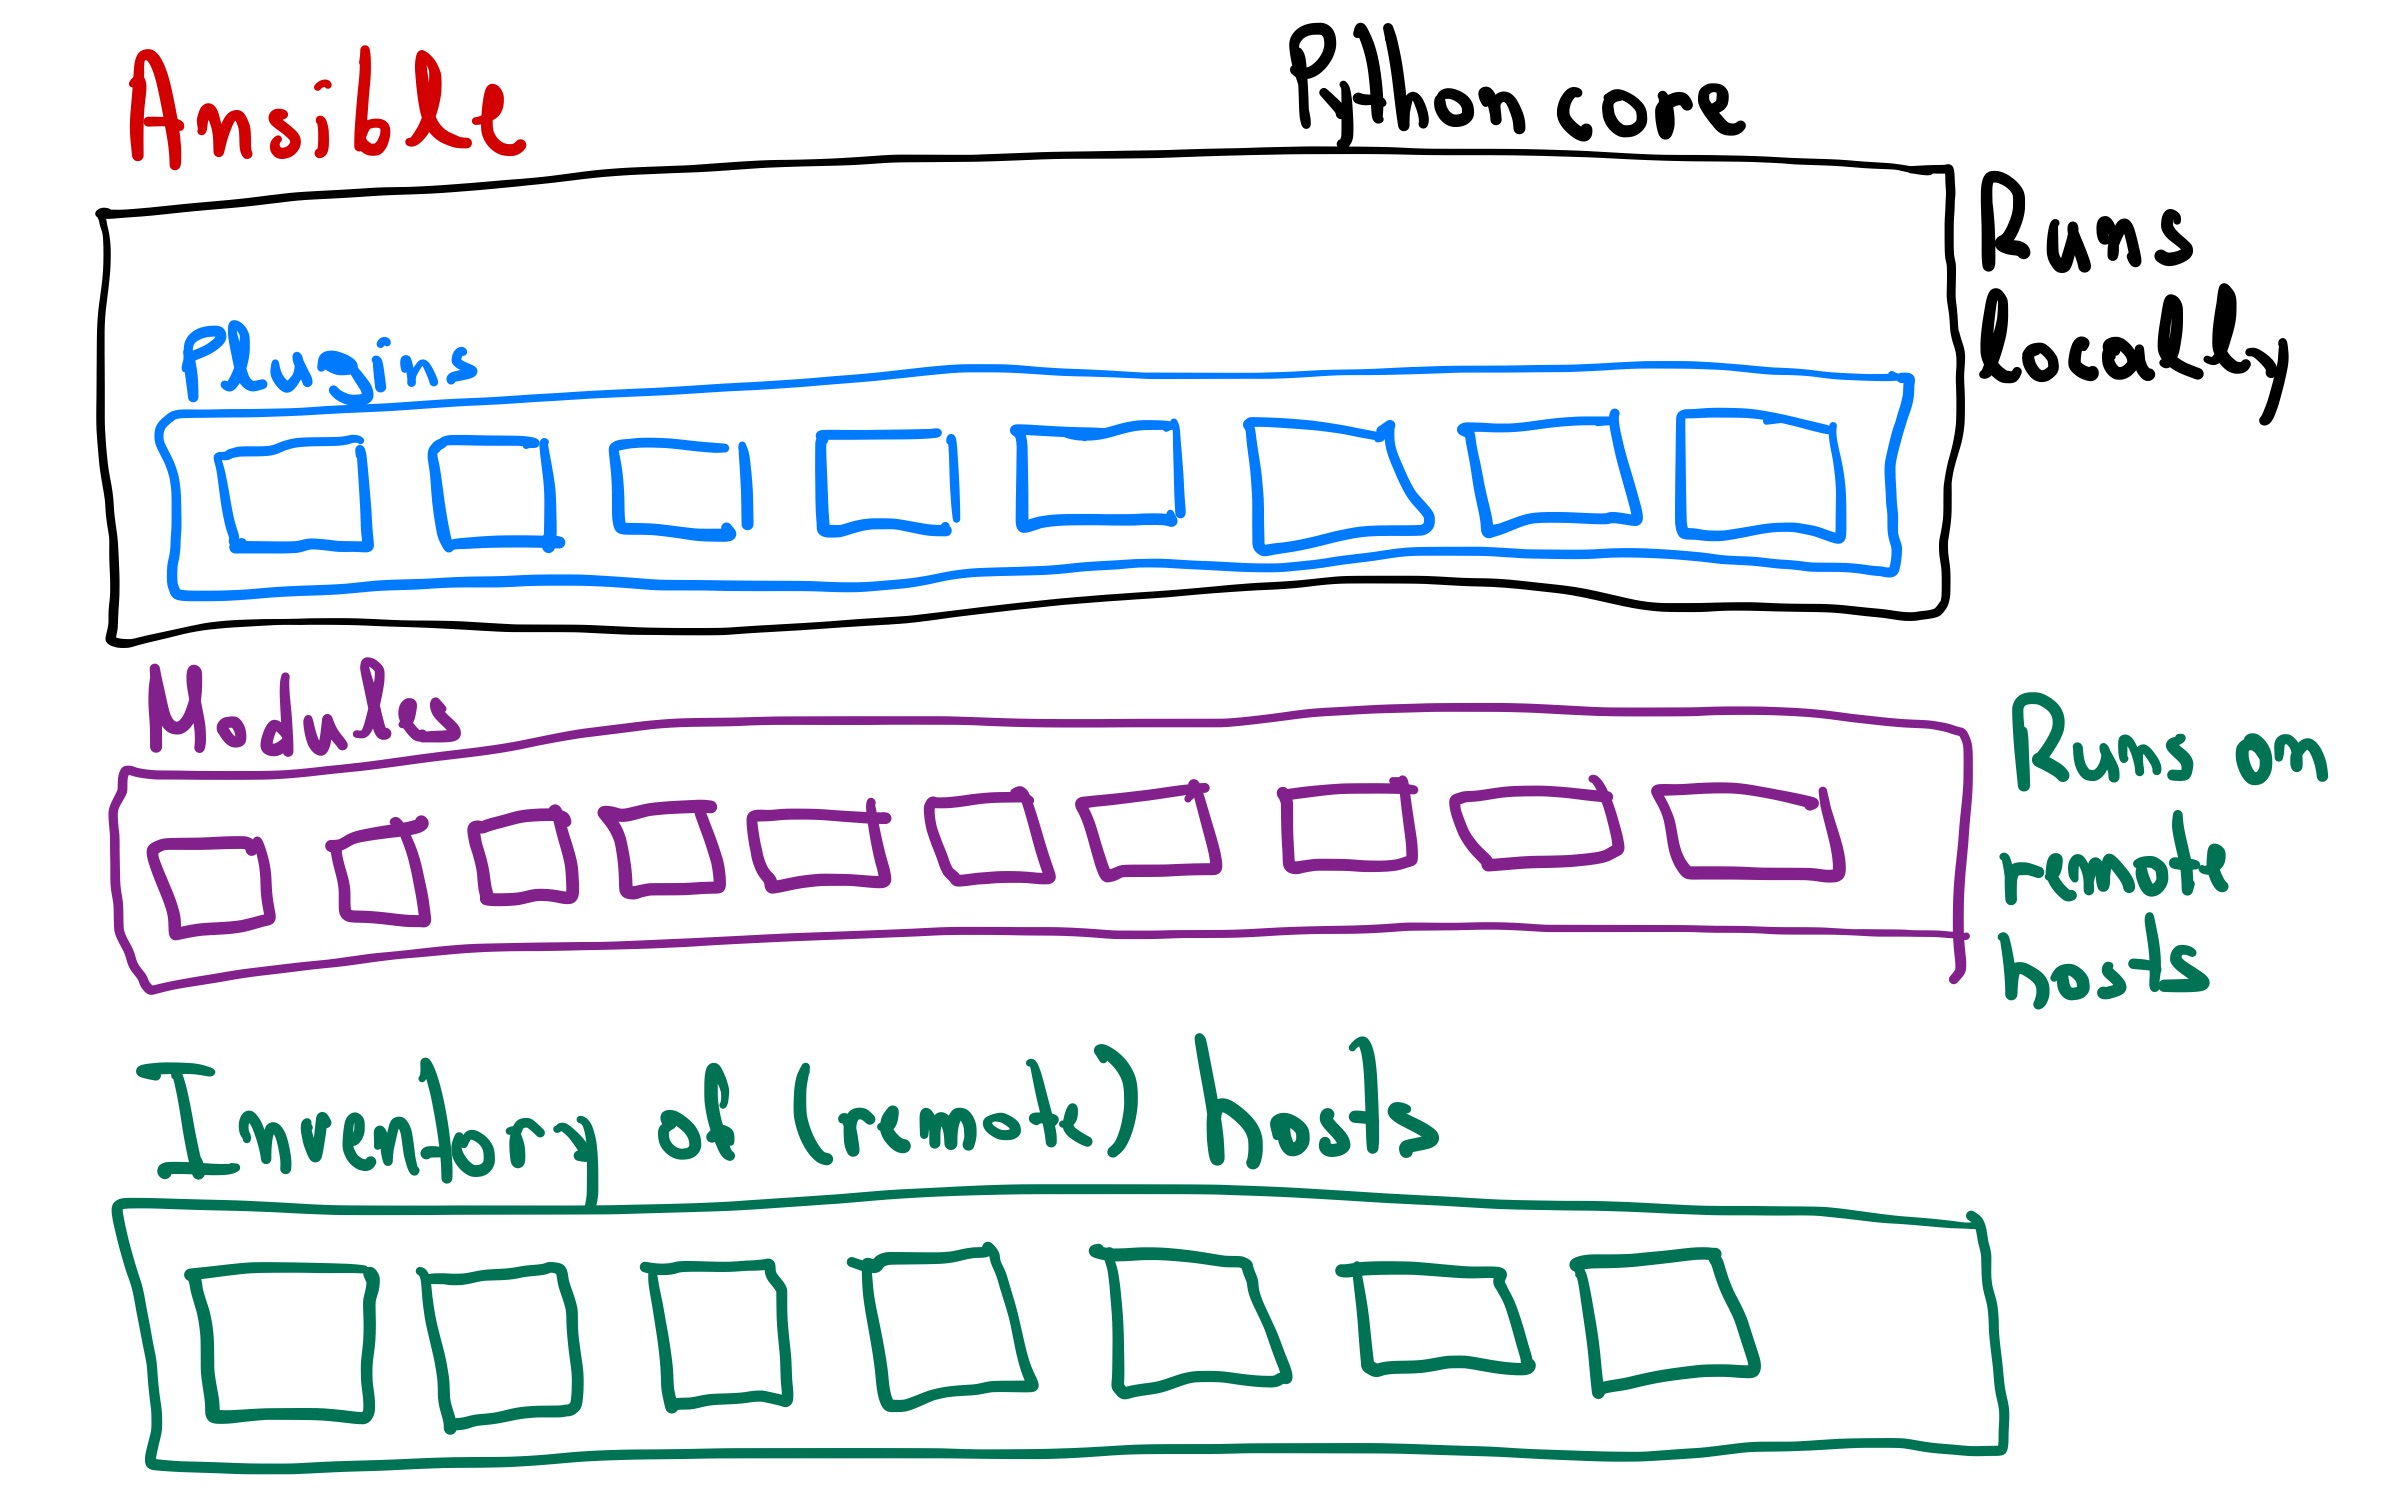 Ansible
Python core
Runs
locally
Plugins
Modules
Runs on
remote
hosts
Inventory of (remote) hosts